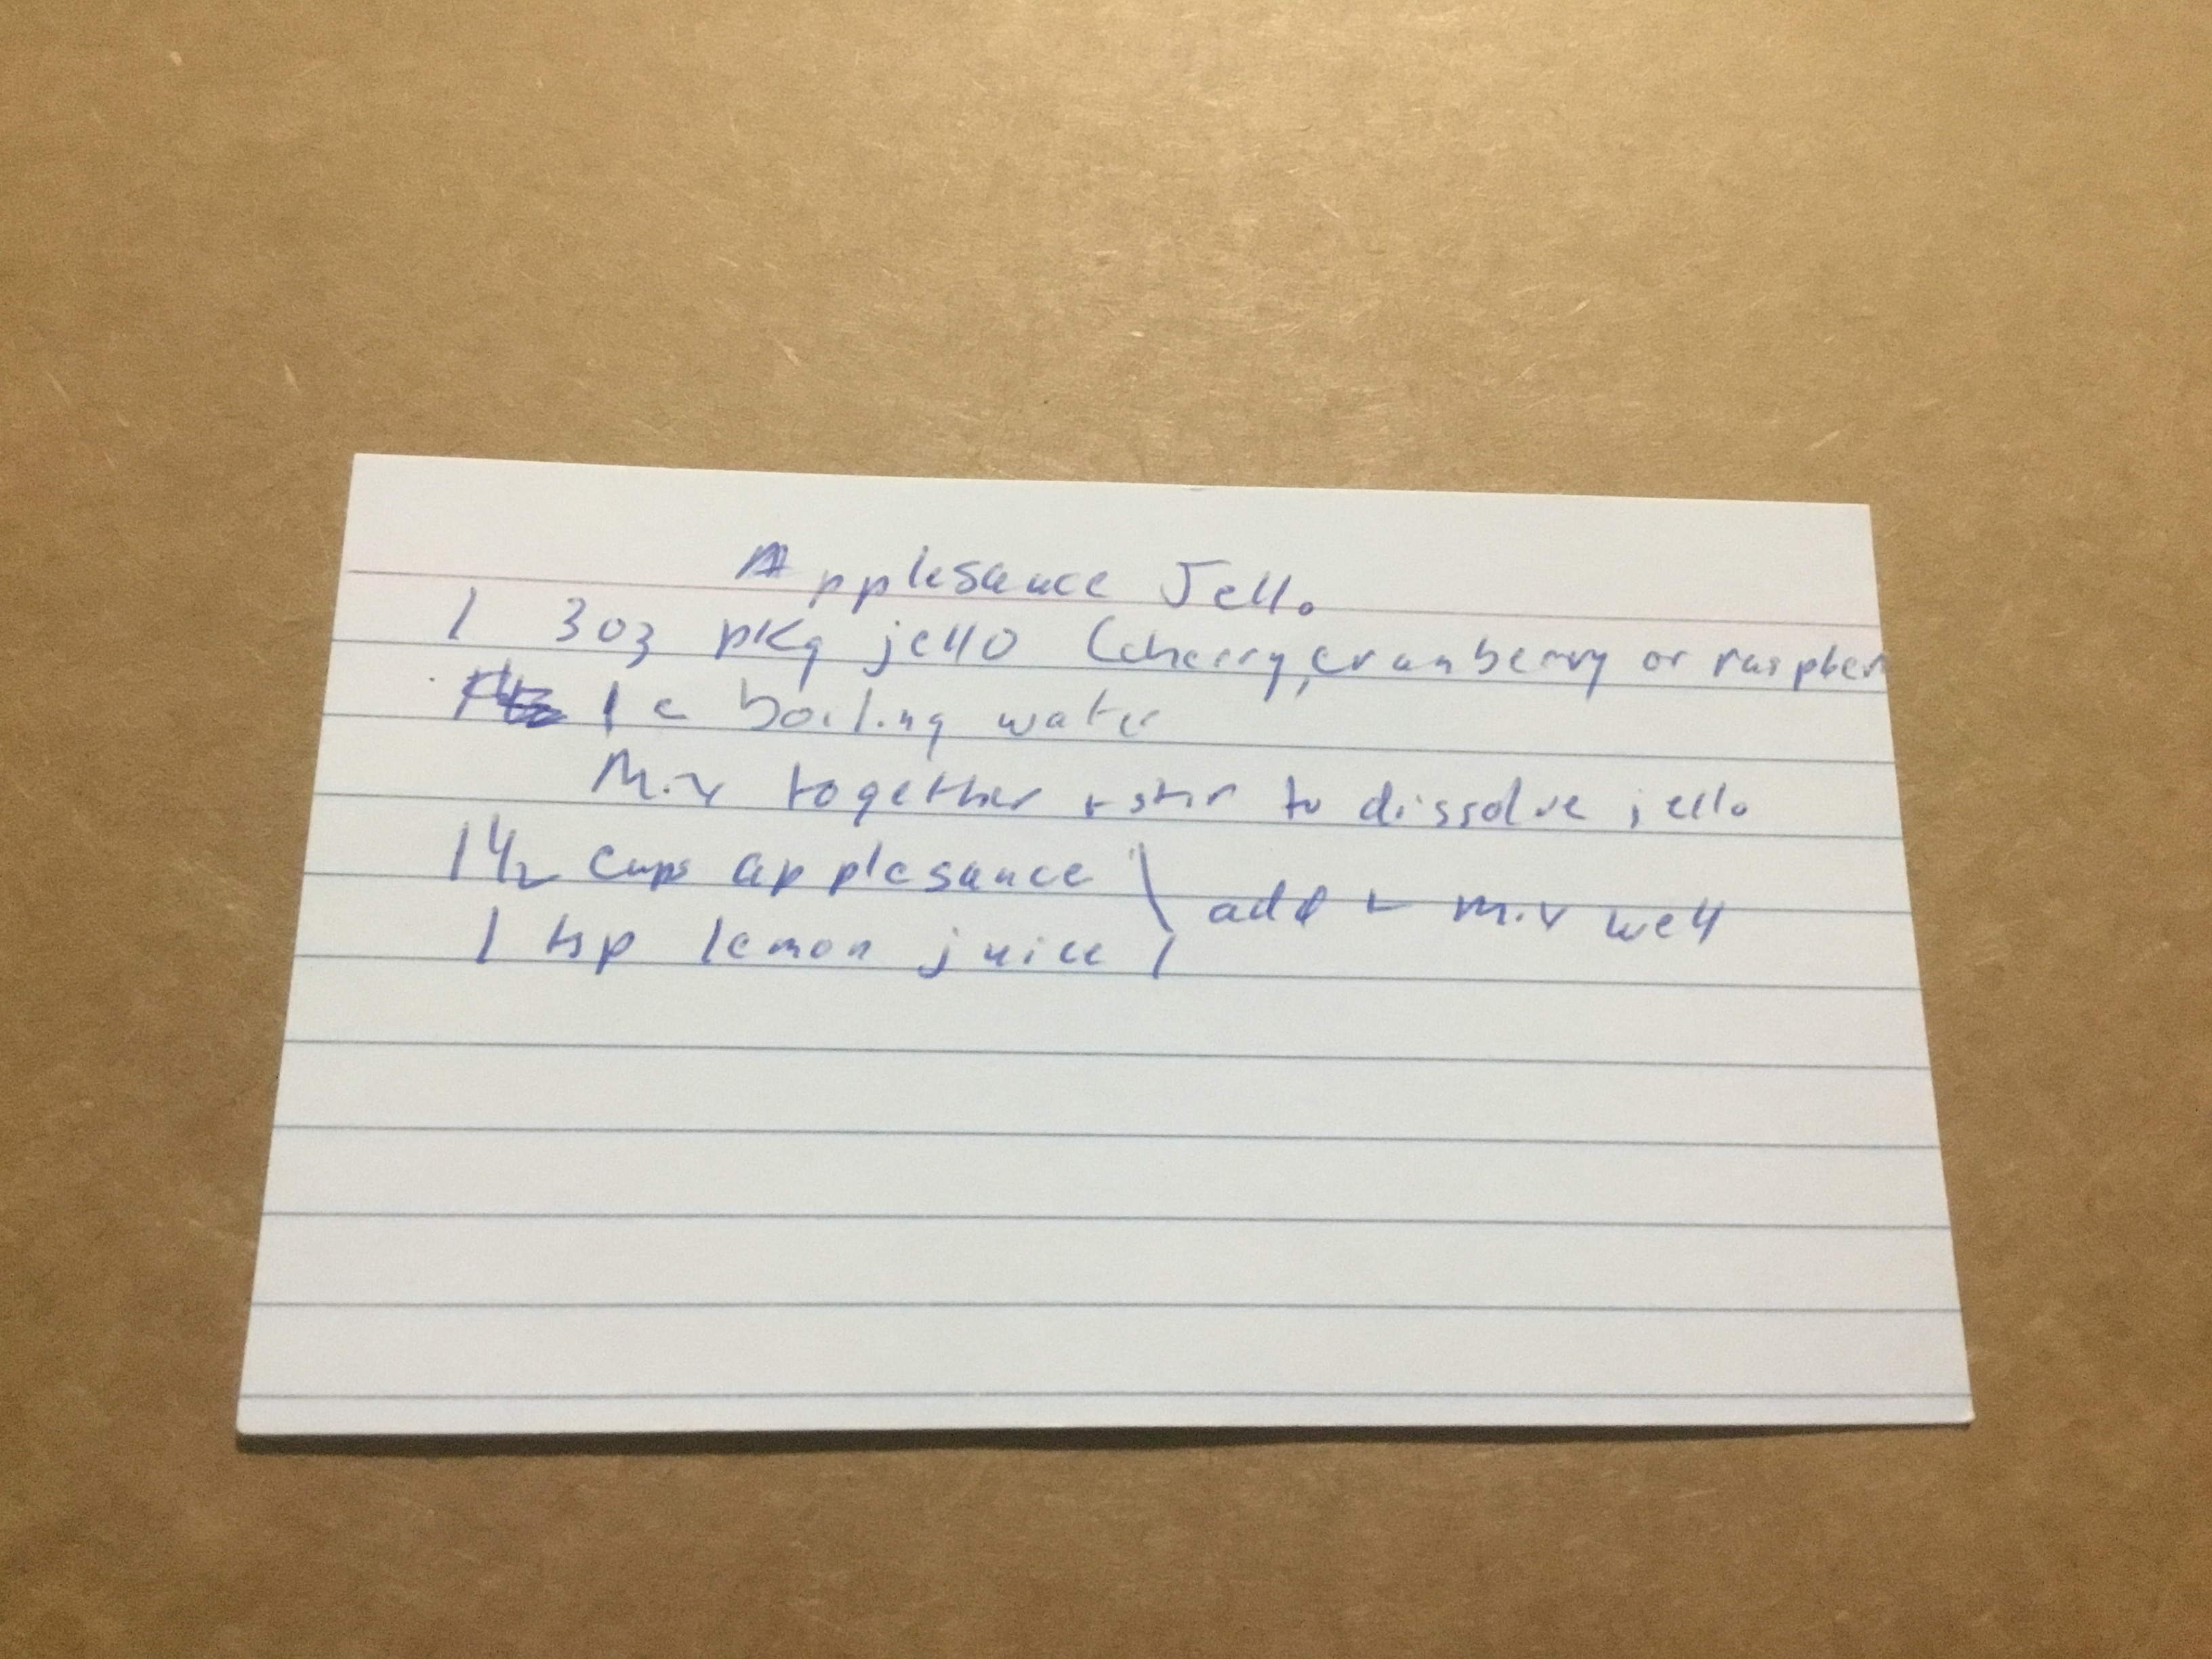 Applesauce Jello
1 3oz pkg jello (cherry, cranberry or raspber
1 c boiling water
Mix together + stir to dissolve jello
1 1/2 cups applesauce
1 tsp lemon juice
add + mix well